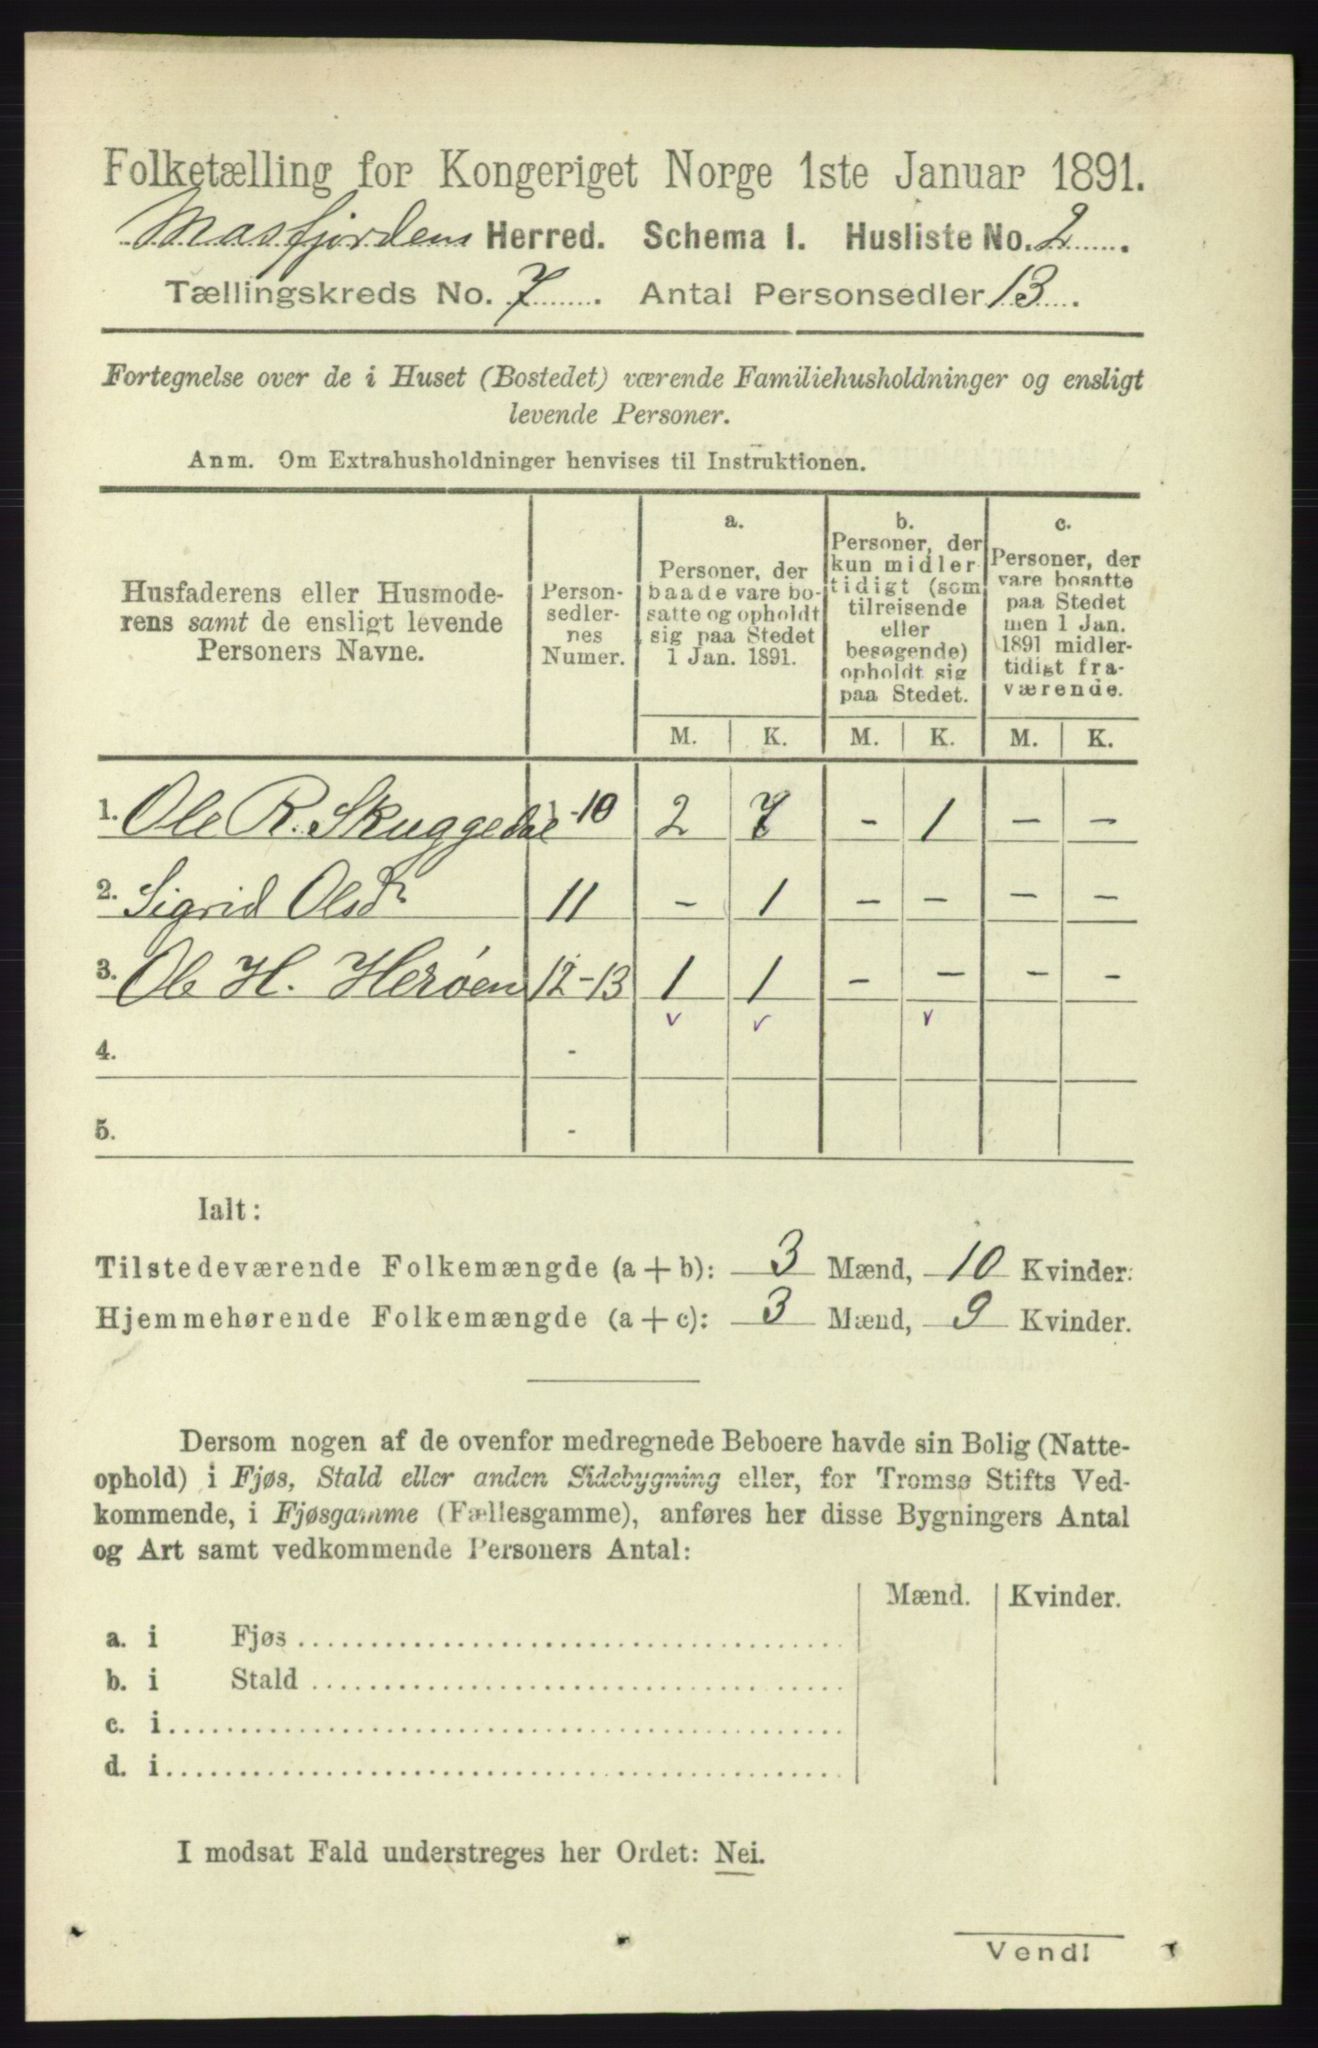 Folketælling for Kongeriget Norge 1ste Januar 1891.
Masfjordens Herred. Schema I. Husliste No. 2
Tællingskreds No. 7. Antal Personsedler 13.
Fortegnelse over de i Huset (Bostedet) værende Familiehusholdninger og ensligt
levende Personer.
Anm. Om Extrahusholdninger henvises til Instruktionen.
Husfaderens eller Husmode-
rens samt de ensligt levende
Personers Navne.
Person-
sedler-
nes
Numer.
a.
Personer, der
baade vare bo-
satte og opholdt
sig paa Stedet
1 Jan. 1891.
b.
Personer, der
kun midler-
tidigt (som
tilreisende
eller
besøgende)
opholdt sig
paa Stedet.
c.
Personer, der
vare bosatte
paa Stedet
men 1 Jan.
1891 midler-
tidigt fra-
værende.
M. K. M. K. M. K.
1. Ole R. Skuggedal 1-10 2 7 - 1 - -
2. Sigrid Olsdr 11 - 1 - - - -
3. Ole H. Herøen 12-13 1 1 - - - -
4. -
5. -
Ialt:
Tilstedeværende Folkemængde (a+b): 3 Mænd, 10 Kvinder.
Hjemmehørende Folkemængde (a+c): 3 Mænd, 9 Kvinder.
Dersom nogen af de ovenfor medregnede Beboere havde sin Bolig (Natte-
ophold) i Fjøs, Stald eller anden Sidebygning eller, for Tromsø Stifts Ved-
kommende, i Fjøsgamme (Fællesgamme), anføres her disse Bygningers Antal
og Art samt vedkommende Personers Antal:
Mænd. Kvinder.
a. i Fjøs
b. i Stald
c. i
d. i
I modsat Fald understreges her Ordet: Nei.
Vend!